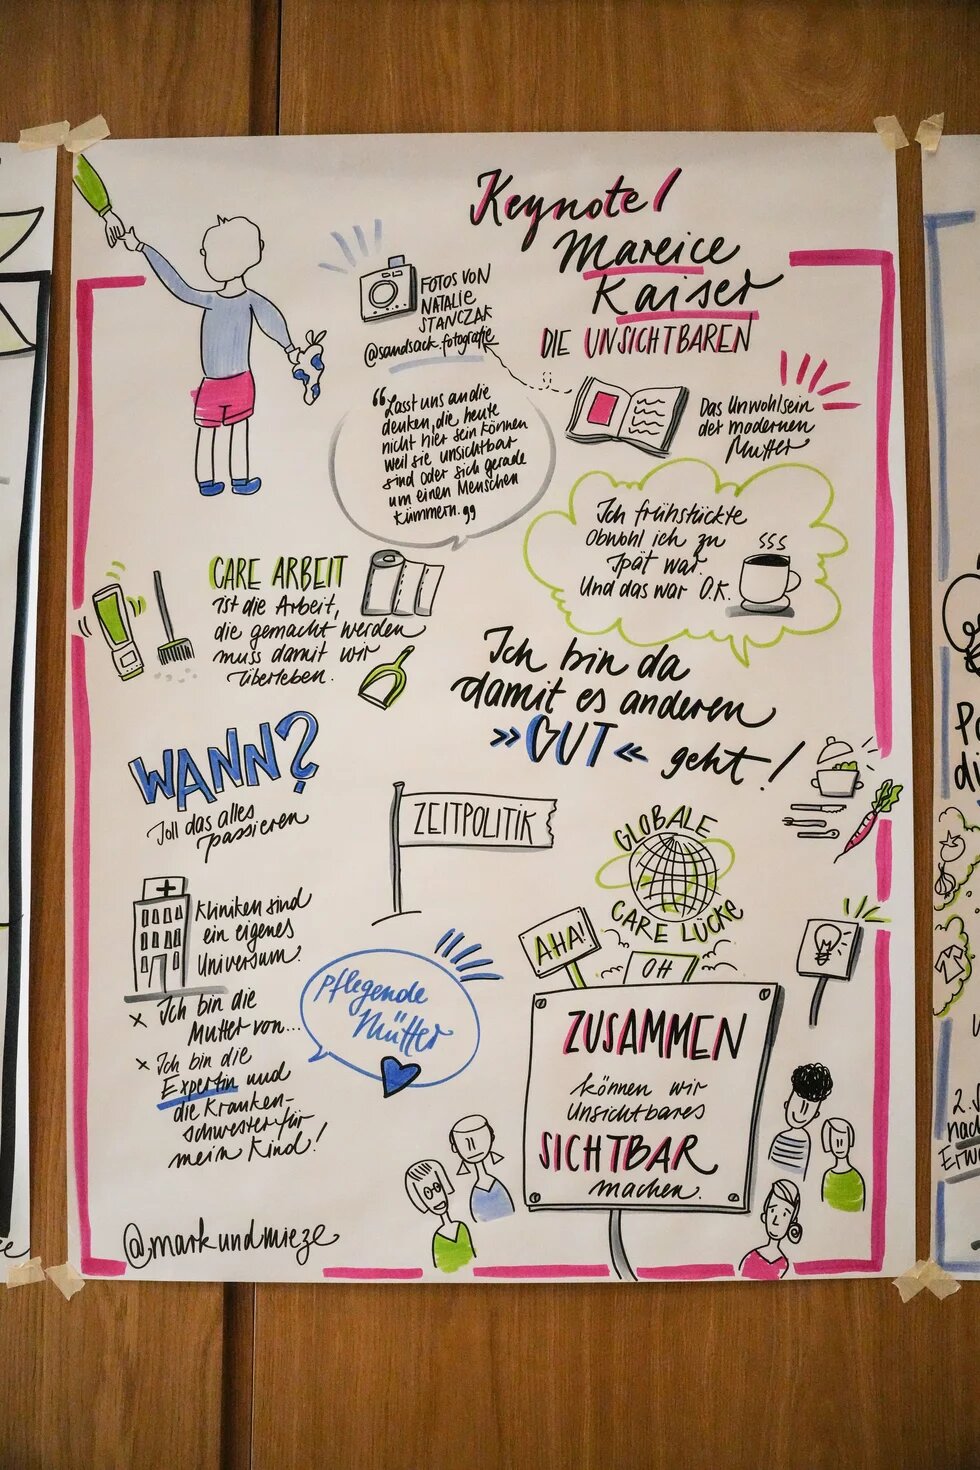 Keynote/
Mareice
Kaiser
DIE UNSICHTBAREN
FOTOS VON
NATALIE
STANCZAK
@sandsack.fotografie
Das Unwohlsein
der modernen
Mutter
"Lasst uns an die
denken, die heute
nicht hier sein können
weil sie unsichtbar
sind oder sich gerade
um einen Menschen
kümmern."
Ich frühstückte
Obwohl ich zu
spät war.
Und das war O.K.
CARE ARBEIT
ist die Arbeit,
die gemacht werden
muss damit wir
überleben.
Ich bin da
damit es anderen
»GUT« geht!
WANN?
soll das alles
passieren
ZEITPOLITIK
GLOBALE
CARE LÜCKE
Kliniken sind
ein eigenes
Universum.
x Ich bin die
Mutter von...
x Ich bin die
Expertin und
die Kranken-
schwester für
mein Kind!
Pflegende
Mütter
AHA!
OH
ZUSAMMEN
können wir
Unsichtbares
SICHTBAR
machen.
@markundmieze
2.
nach
Erw